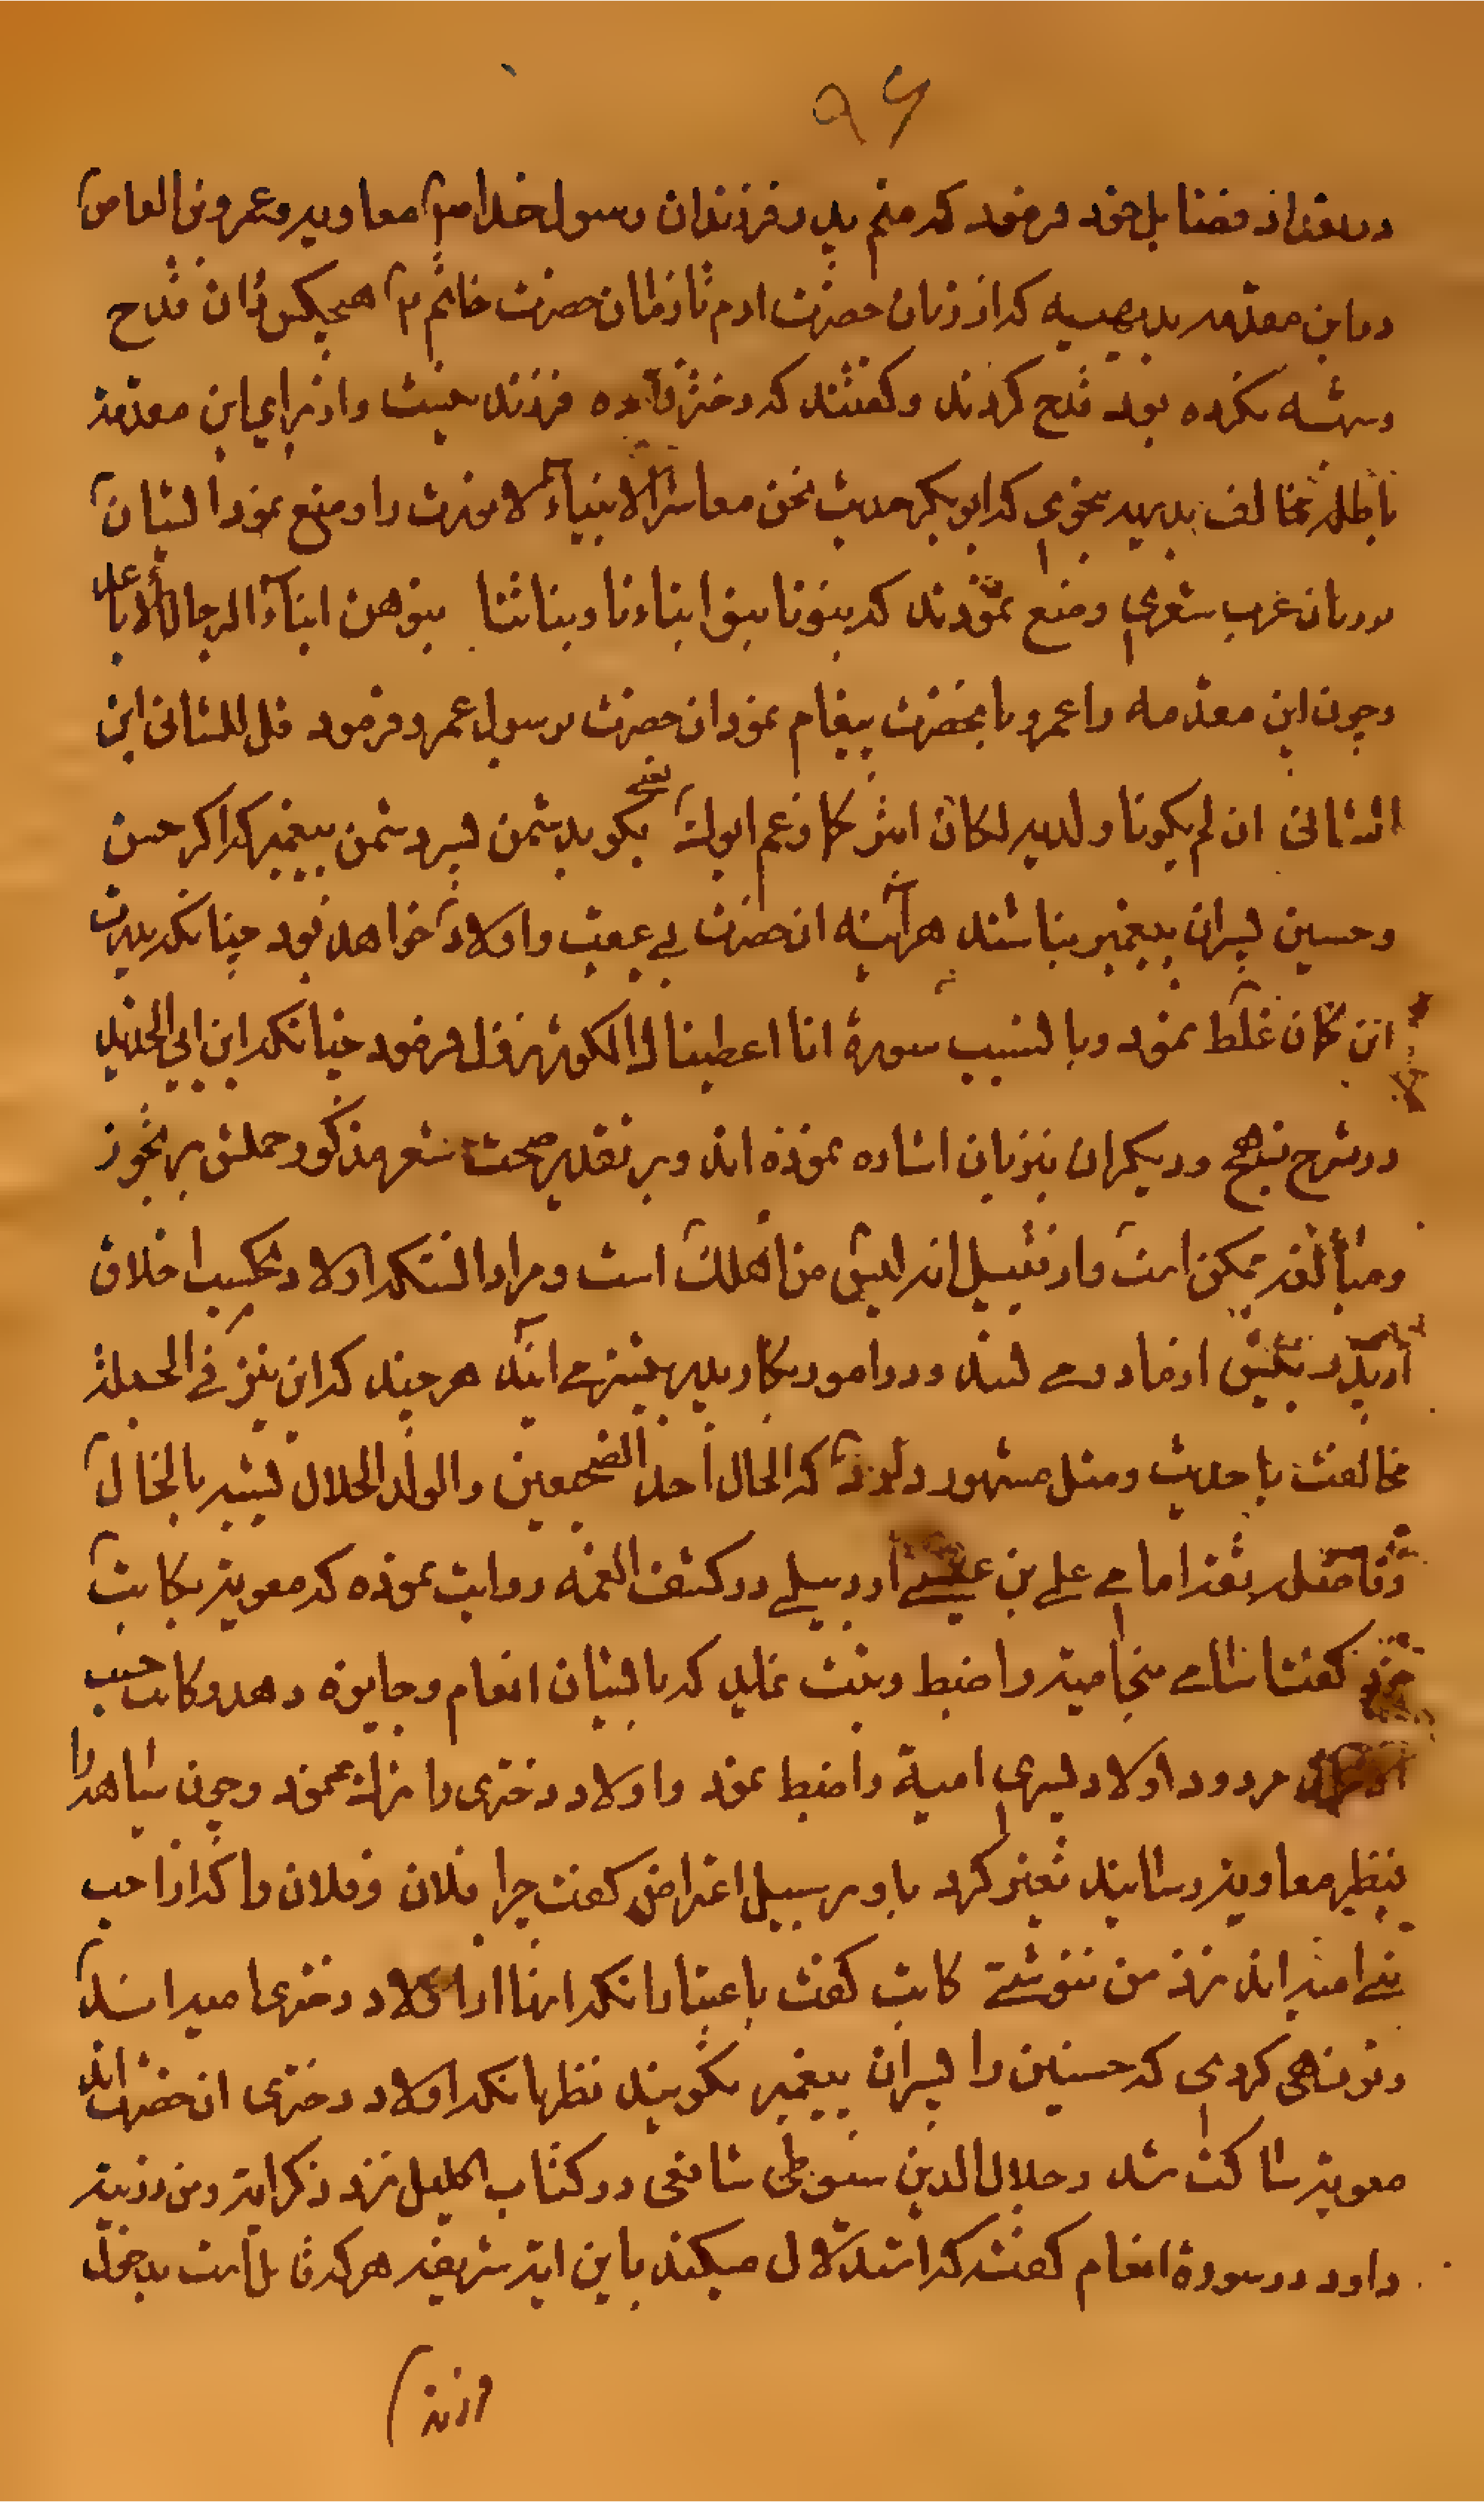 ۹۶
در بعد از فضایل خود فرمود که منم پدر فرزندان رسول خدا معاویه و عمرو بن العاص
در این مقدمه بدیهیه که از زمان حضرت ادم تا زمان حضرت خاتم هیچکس دران قدح
و شبهه نکرده بود قدح کردند و گفتند که دختر زاده فرزند نیست و از برای این مقدمه
باطله مخالف بدیهه بنحوی که ابو بکر حدیث نحن معاشر الانبیاء لا نورث را وضع نمود ایشان
در زبان عرب شعری وضع نمودند که بنونا بنو ابناءنا وبناتنا بنوهن ابناء الرجال الاباعد
و چون این مقدمه را عمرو بانحضرت پیغام نمود ان حضرت برسول عمرو فرمود قل للشانی ابن
الشانی ان لم یکونا ولدیه لکان ابتر کما زعم ابوك یعنی بگو بدشمن پسر دشمن پیغمبر که اگر حسن
و حسین پسران پیغمبر نباشند هرآینه ان حضرت بی عقب و اولاد خواهد بود چنانکه پدرت
این گمان غلط نمود و بالسبب سورة انا اعطیناك الکوثر نزول فرمود چنانکه ابن ابی الحدید
در شرح نهج و دیگران نیز بان اشاره نموده اند و بر تقدیر صحت شعر مذکور حملش بر تجوز
و مبالغه ممکن است و از قبیل انه لیس من اهلك است و مراد انستکه اولاد در کسب اخلاق
از پدر بیش از مادر می کنند و در امور بکار پدر بیشتر می ایند هر چند که این نیز فی الجمله
مخالفت با حدیث و مثل مشهور دارد که الخال احد الضجیعین والولد الحلال یشبه بالخال
و فاضل ثقه امامی علی بن عیسی اردبیلی در کشف الغمه روایت نموده که معویه بکاتب
خود گفت اسامی بنی امیه را ضبط و ثبت نماید که بایشان انعام و جایزه دهد و کاتب حسب
مردود اولاد پسری امیة را ضبط نمود و اولاد دختری را ترك نمود و چون سیاهه را
بنظر معاویه رسانید تغیر کرد باو بر سبیل اعتراض گفت چرا فلان و فلان را که از احب
بنی امیه اند نزد من ننوشتی کاتب گفت باعتبار انکه اینها از اولاد دختری امیه اند
و تو نهی کردی که حسنین را پسران پیغمبر نگویند نظر بانکه اولاد دختری انحضرت اند
معویه ساکت شد و جلال الدین سیوطی شافعی در کتاب اکلیل نزد ذکر ایة ومن ذریته
داود در سورة انعام گفت که استدلال میکند باین ایه شریفه هر که قائل است بدخول